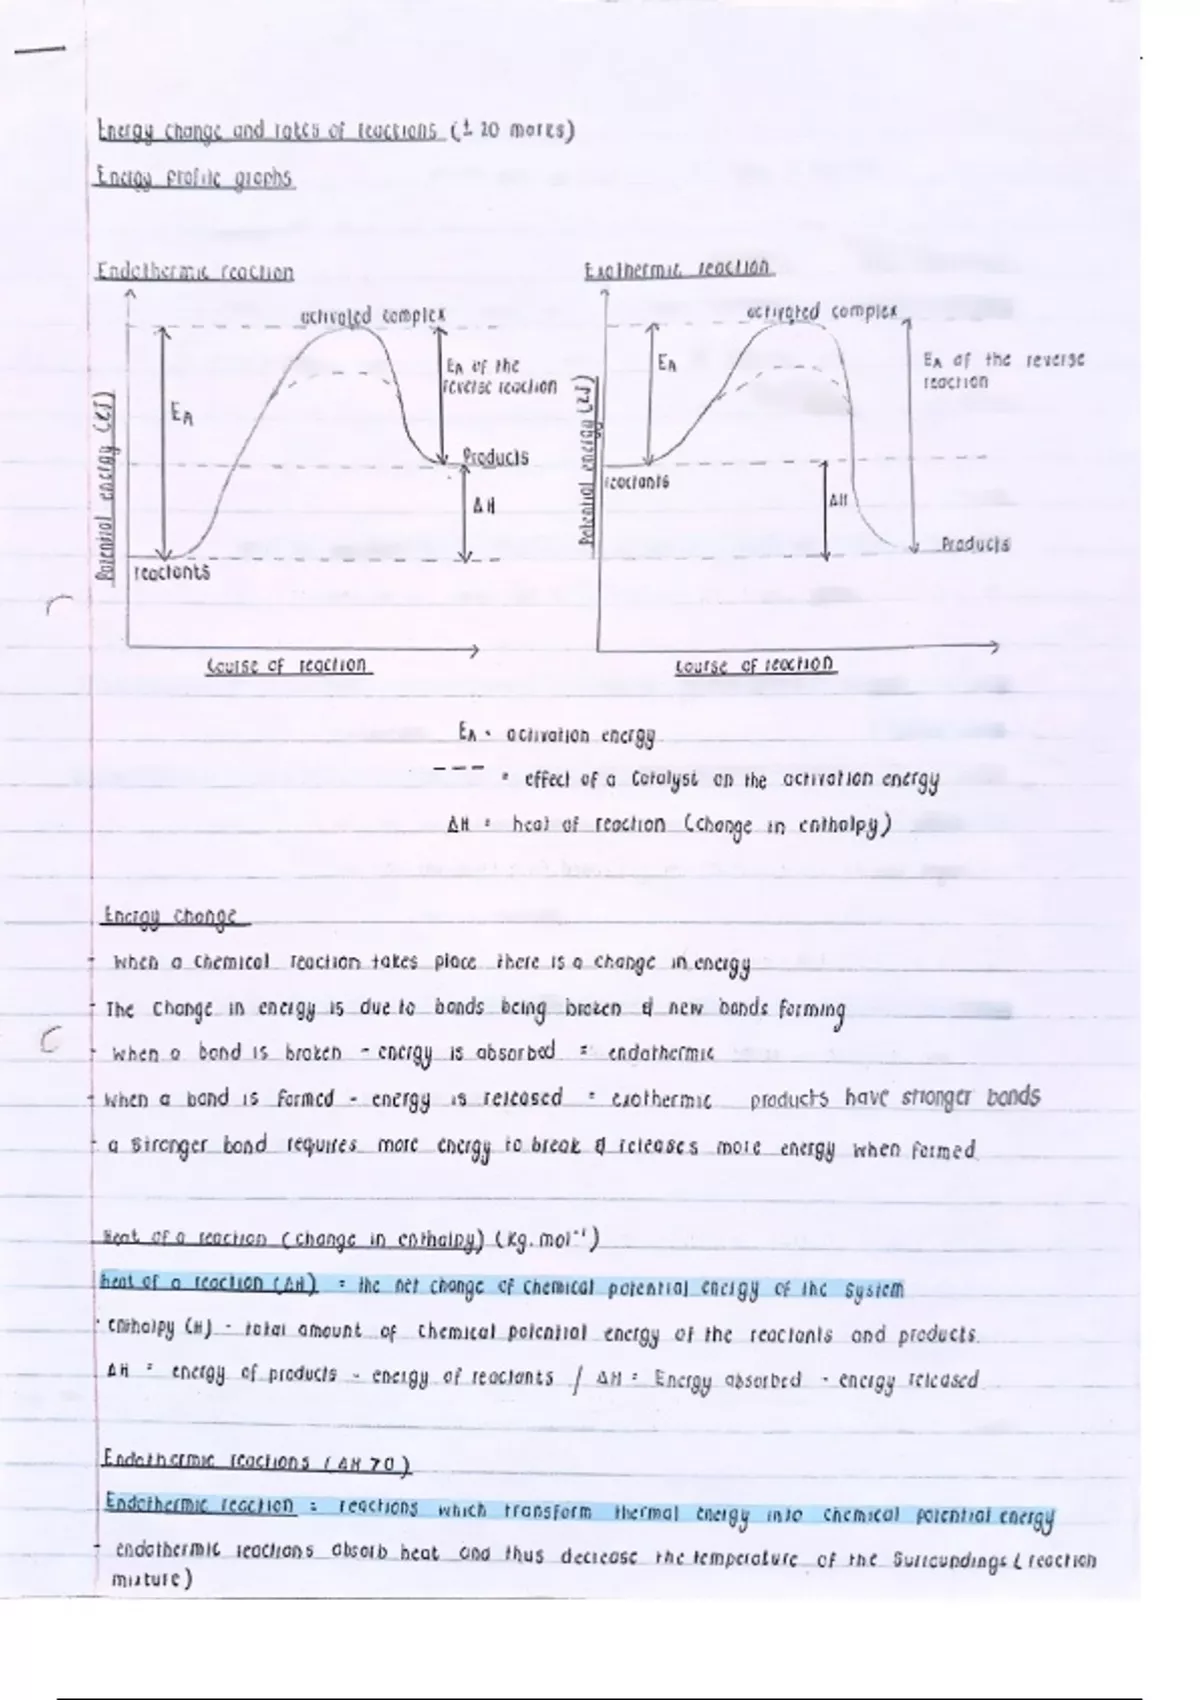 Energy change and rates of reactions (± 20 marks)
Energy profile graphs
Endothermic reaction
activated complex
EA
EA of the
reverse reaction
Products
ΔH
reactants
Potential energy (kJ)
Course of reaction
Exothermic reaction
activated complex
EA
EA of the reverse
reaction
reactants
ΔH
Products
Potential energy (kJ)
Course of reaction
EA = activation energy
--- = effect of a catalyst on the activation energy
ΔH = heat of reaction (change in enthalpy)
Energy change
- when a chemical reaction takes place there is a change in energy
- The change in energy is due to bonds being broken & new bonds forming
- when a bond is broken - energy is absorbed = endothermic
- when a bond is formed - energy is released = exothermic products have stronger bonds
- a stronger bond requires more energy to break & releases more energy when formed
Heat of a reaction (change in enthalpy) (kg.mol⁻¹)
heat of a reaction (ΔH) = the net change of chemical potential energy of the system
· enthalpy (H) - total amount of chemical potential energy of the reactants and products.
ΔH = energy of products - energy of reactants / ΔH = Energy absorbed - energy released
Endothermic reactions (ΔH > 0)
Endothermic reaction = reactions which transform thermal energy into chemical potential energy
- endothermic reactions absorb heat and thus decrease the temperature of the surroundings (reaction
mixture)